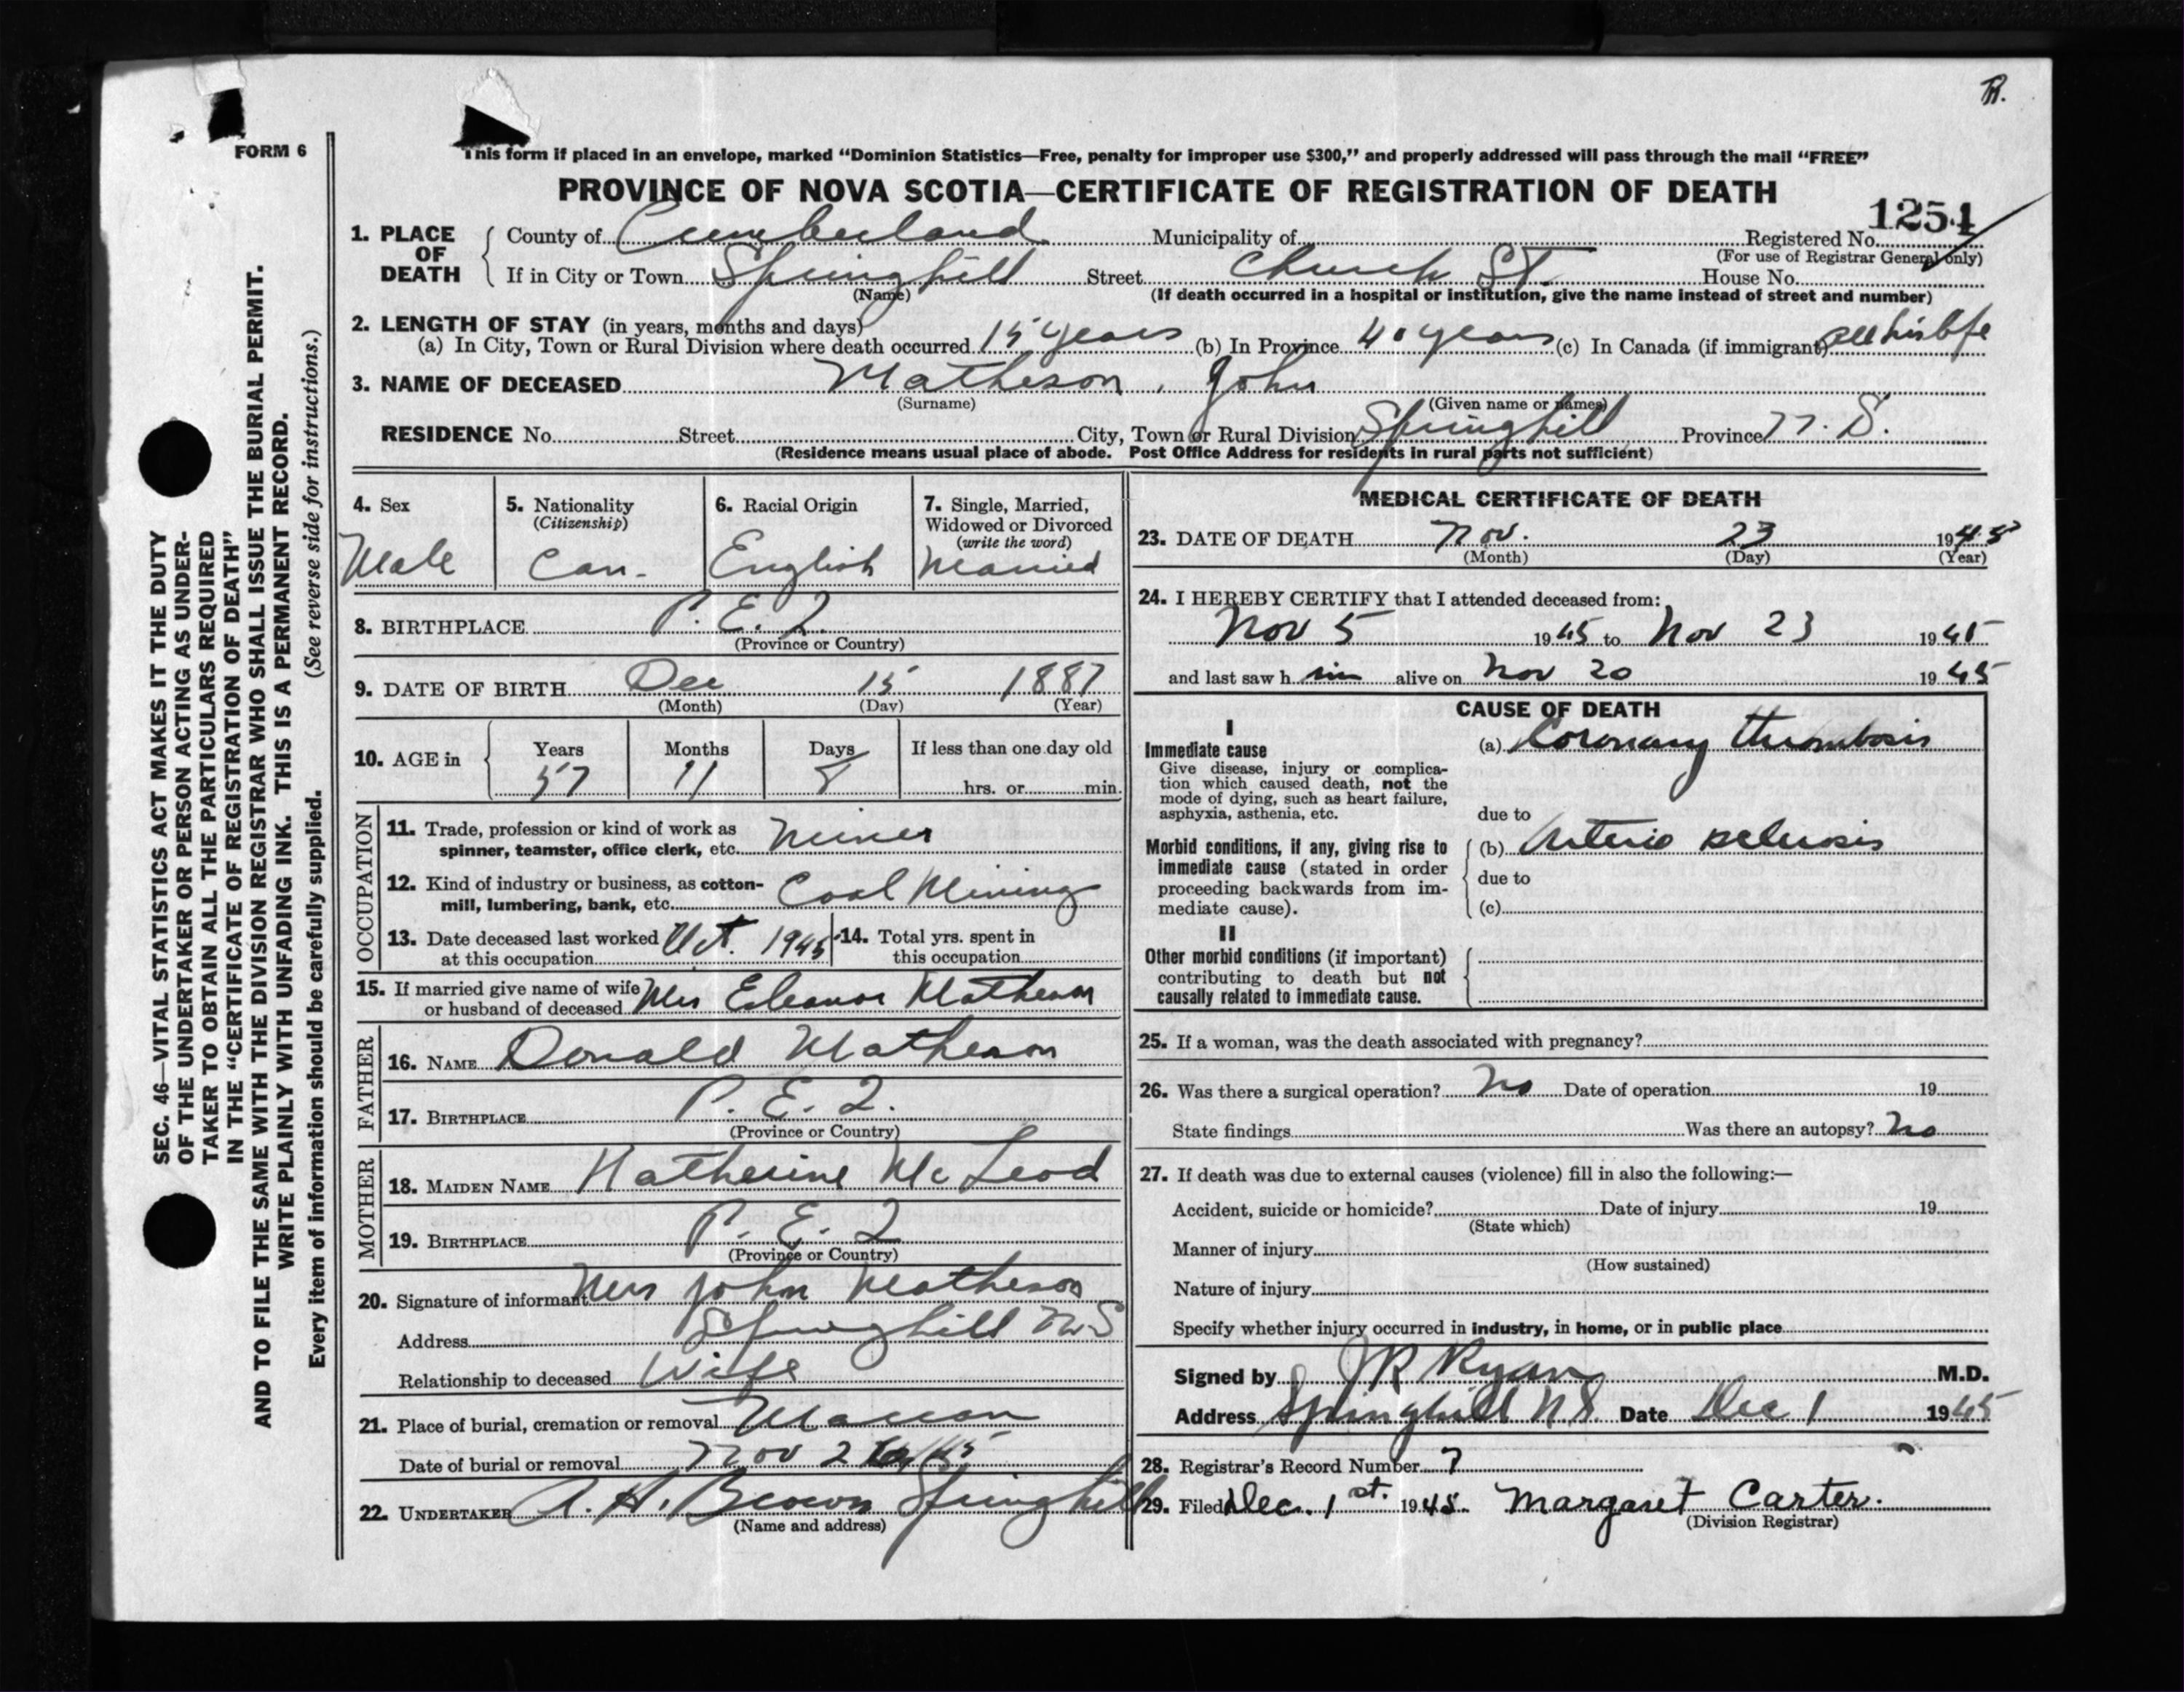 R.
FORM 6
This form if placed in an envelope, marked “Dominion Statistics—Free, penalty for improper use $300,” and properly addressed will pass through the mail “FREE”
PROVINCE OF NOVA SCOTIA—CERTIFICATE OF REGISTRATION OF DEATH
1254
1. PLACE OF DEATH
County of Cumberland Municipality of Registered No.
(For use of Registrar General only)
If in City or Town Springhill Street Church St. House No.
(Name) (If death occurred in a hospital or institution, give the name instead of street and number)
2. LENGTH OF STAY (in years, months and days)
(a) In City, Town or Rural Division where death occurred 15 years (b) In Province 40 years (c) In Canada (if immigrant) all his life
3. NAME OF DECEASED Matheson, John
(Surname) (Given name or names)
RESIDENCE No. Street City, Town or Rural Division Springhill Province N. S.
(Residence means usual place of abode. Post Office Address for residents in rural parts not sufficient)
4. Sex Male
5. Nationality (Citizenship) Can.
6. Racial Origin English
7. Single, Married, Widowed or Divorced (write the word) Married
8. BIRTHPLACE P. E. I.
(Province or Country)
9. DATE OF BIRTH Dec 15 1887
(Month) (Day) (Year)
10. AGE in Years 57 Months 11 Days 8 If less than one day old hrs. or min.
OCCUPATION
11. Trade, profession or kind of work as spinner, teamster, office clerk, etc. Miner
12. Kind of industry or business, as cotton-mill, lumbering, bank, etc. Coal Mining
13. Date deceased last worked at this occupation Oct. 1945 14. Total yrs. spent in this occupation
15. If married give name of wife or husband of deceased Mrs Eleanor Matheson
FATHER
16. NAME Donald Matheson
17. BIRTHPLACE P. E. I.
(Province or Country)
MOTHER
18. MAIDEN NAME Katherine McLeod
19. BIRTHPLACE P. E. I
(Province or Country)
20. Signature of informant Mrs John Matheson
Address Springhill NS
Relationship to deceased Wife
21. Place of burial, cremation or removal Maccan
Date of burial or removal Nov 2
22. UNDERTAKER A. H. Brown Springhill
(Name and address)
MEDICAL CERTIFICATE OF DEATH
23. DATE OF DEATH Nov. 23 1945
(Month) (Day) (Year)
24. I HEREBY CERTIFY that I attended deceased from:
Nov 5 1945 to Nov 23 1945
and last saw h im alive on Nov 20 1945
CAUSE OF DEATH
I
Immediate cause (a) Coronary thrombosis
Give disease, injury or complica-
tion which caused death, not the
mode of dying, such as heart failure,
asphyxia, asthenia, etc. due to
Morbid conditions, if any, giving rise to (b) Arterio sclerosis
immediate cause (stated in order
proceeding backwards from im- due to
mediate cause). (c)
II
Other morbid conditions (if important)
contributing to death but not
causally related to immediate cause.
25. If a woman, was the death associated with pregnancy?
26. Was there a surgical operation? No Date of operation 19
State findings Was there an autopsy? No
27. If death was due to external causes (violence) fill in also the following:—
Accident, suicide or homicide? Date of injury 19
(State which)
Manner of injury
(How sustained)
Nature of injury
Specify whether injury occurred in industry, in home, or in public place
Signed by JR Ryan M.D.
Address Springhill N.S. Date Dec 1 1945
28. Registrar's Record Number 7
29. Filed Dec. 1st. 1945. Margaret Carter.
(Division Registrar)
SEC. 46—VITAL STATISTICS ACT MAKES IT THE DUTY
OF THE UNDERTAKER OR PERSON ACTING AS UNDER-
TAKER TO OBTAIN ALL THE PARTICULARS REQUIRED
IN THE “CERTIFICATE OF REGISTRATION OF DEATH”
AND TO FILE THE SAME WITH THE DIVISION REGISTRAR WHO SHALL ISSUE THE BURIAL PERMIT.
WRITE PLAINLY WITH UNFADING INK. THIS IS A PERMANENT RECORD.
Every item of information should be carefully supplied. (See reverse side for instructions.)